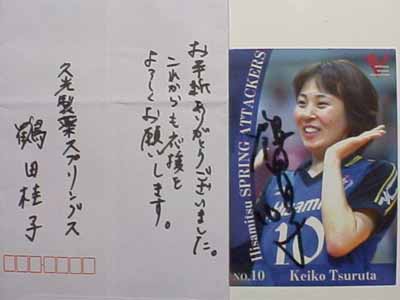 お手紙ありがとうございました。
これからも応援を
よろしくお願いします。
久光製薬スプリングス
鶴田桂子
Hisamitsu SPRING ATTACKERS
Hisamitsu
10
NO.10 Keiko Tsuruta